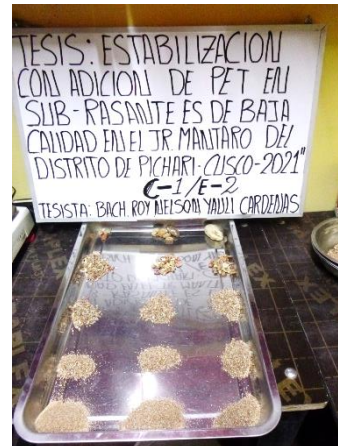 TESIS: ESTABILIZACION
CON ADICION DE PET EN
SUB-RASANTE ES DE BAJA
CALIDAD EN EL JR. MANTARO DEL
DISTRITO DE PICHARI-CUSCO-2021"
C-1/E-2
TESISTA: BACH. ROY NELSON YAULI CARDENAS